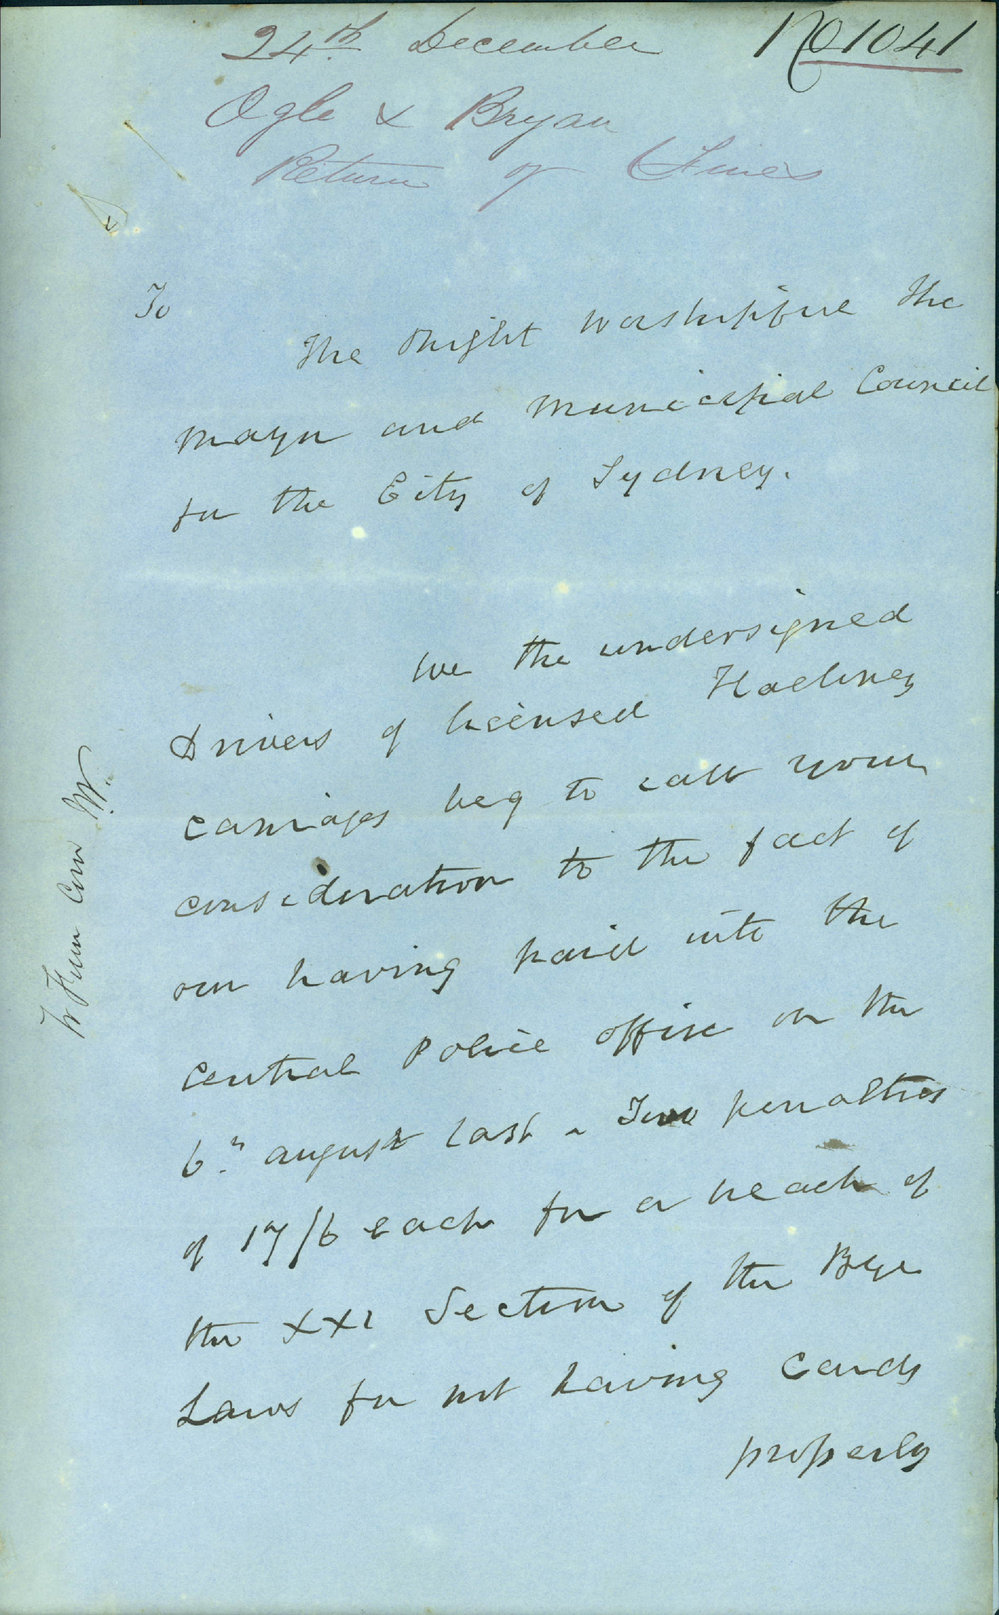 24th December
No 1041
Ogle & Bryan
Return of Fines
To
The Right Worshipful the
Mayor and Municipal Council
for the City of Sydney.
We the undersigned
Drivers of licensed Hackney
carriages beg to call your
consideration to the fact of
our having paid into the
Central Police office on the
6th august last - Two penalties
of 17/6 each for a breach of
the XXI Section of the Bye
Laws for not having Cards
properly